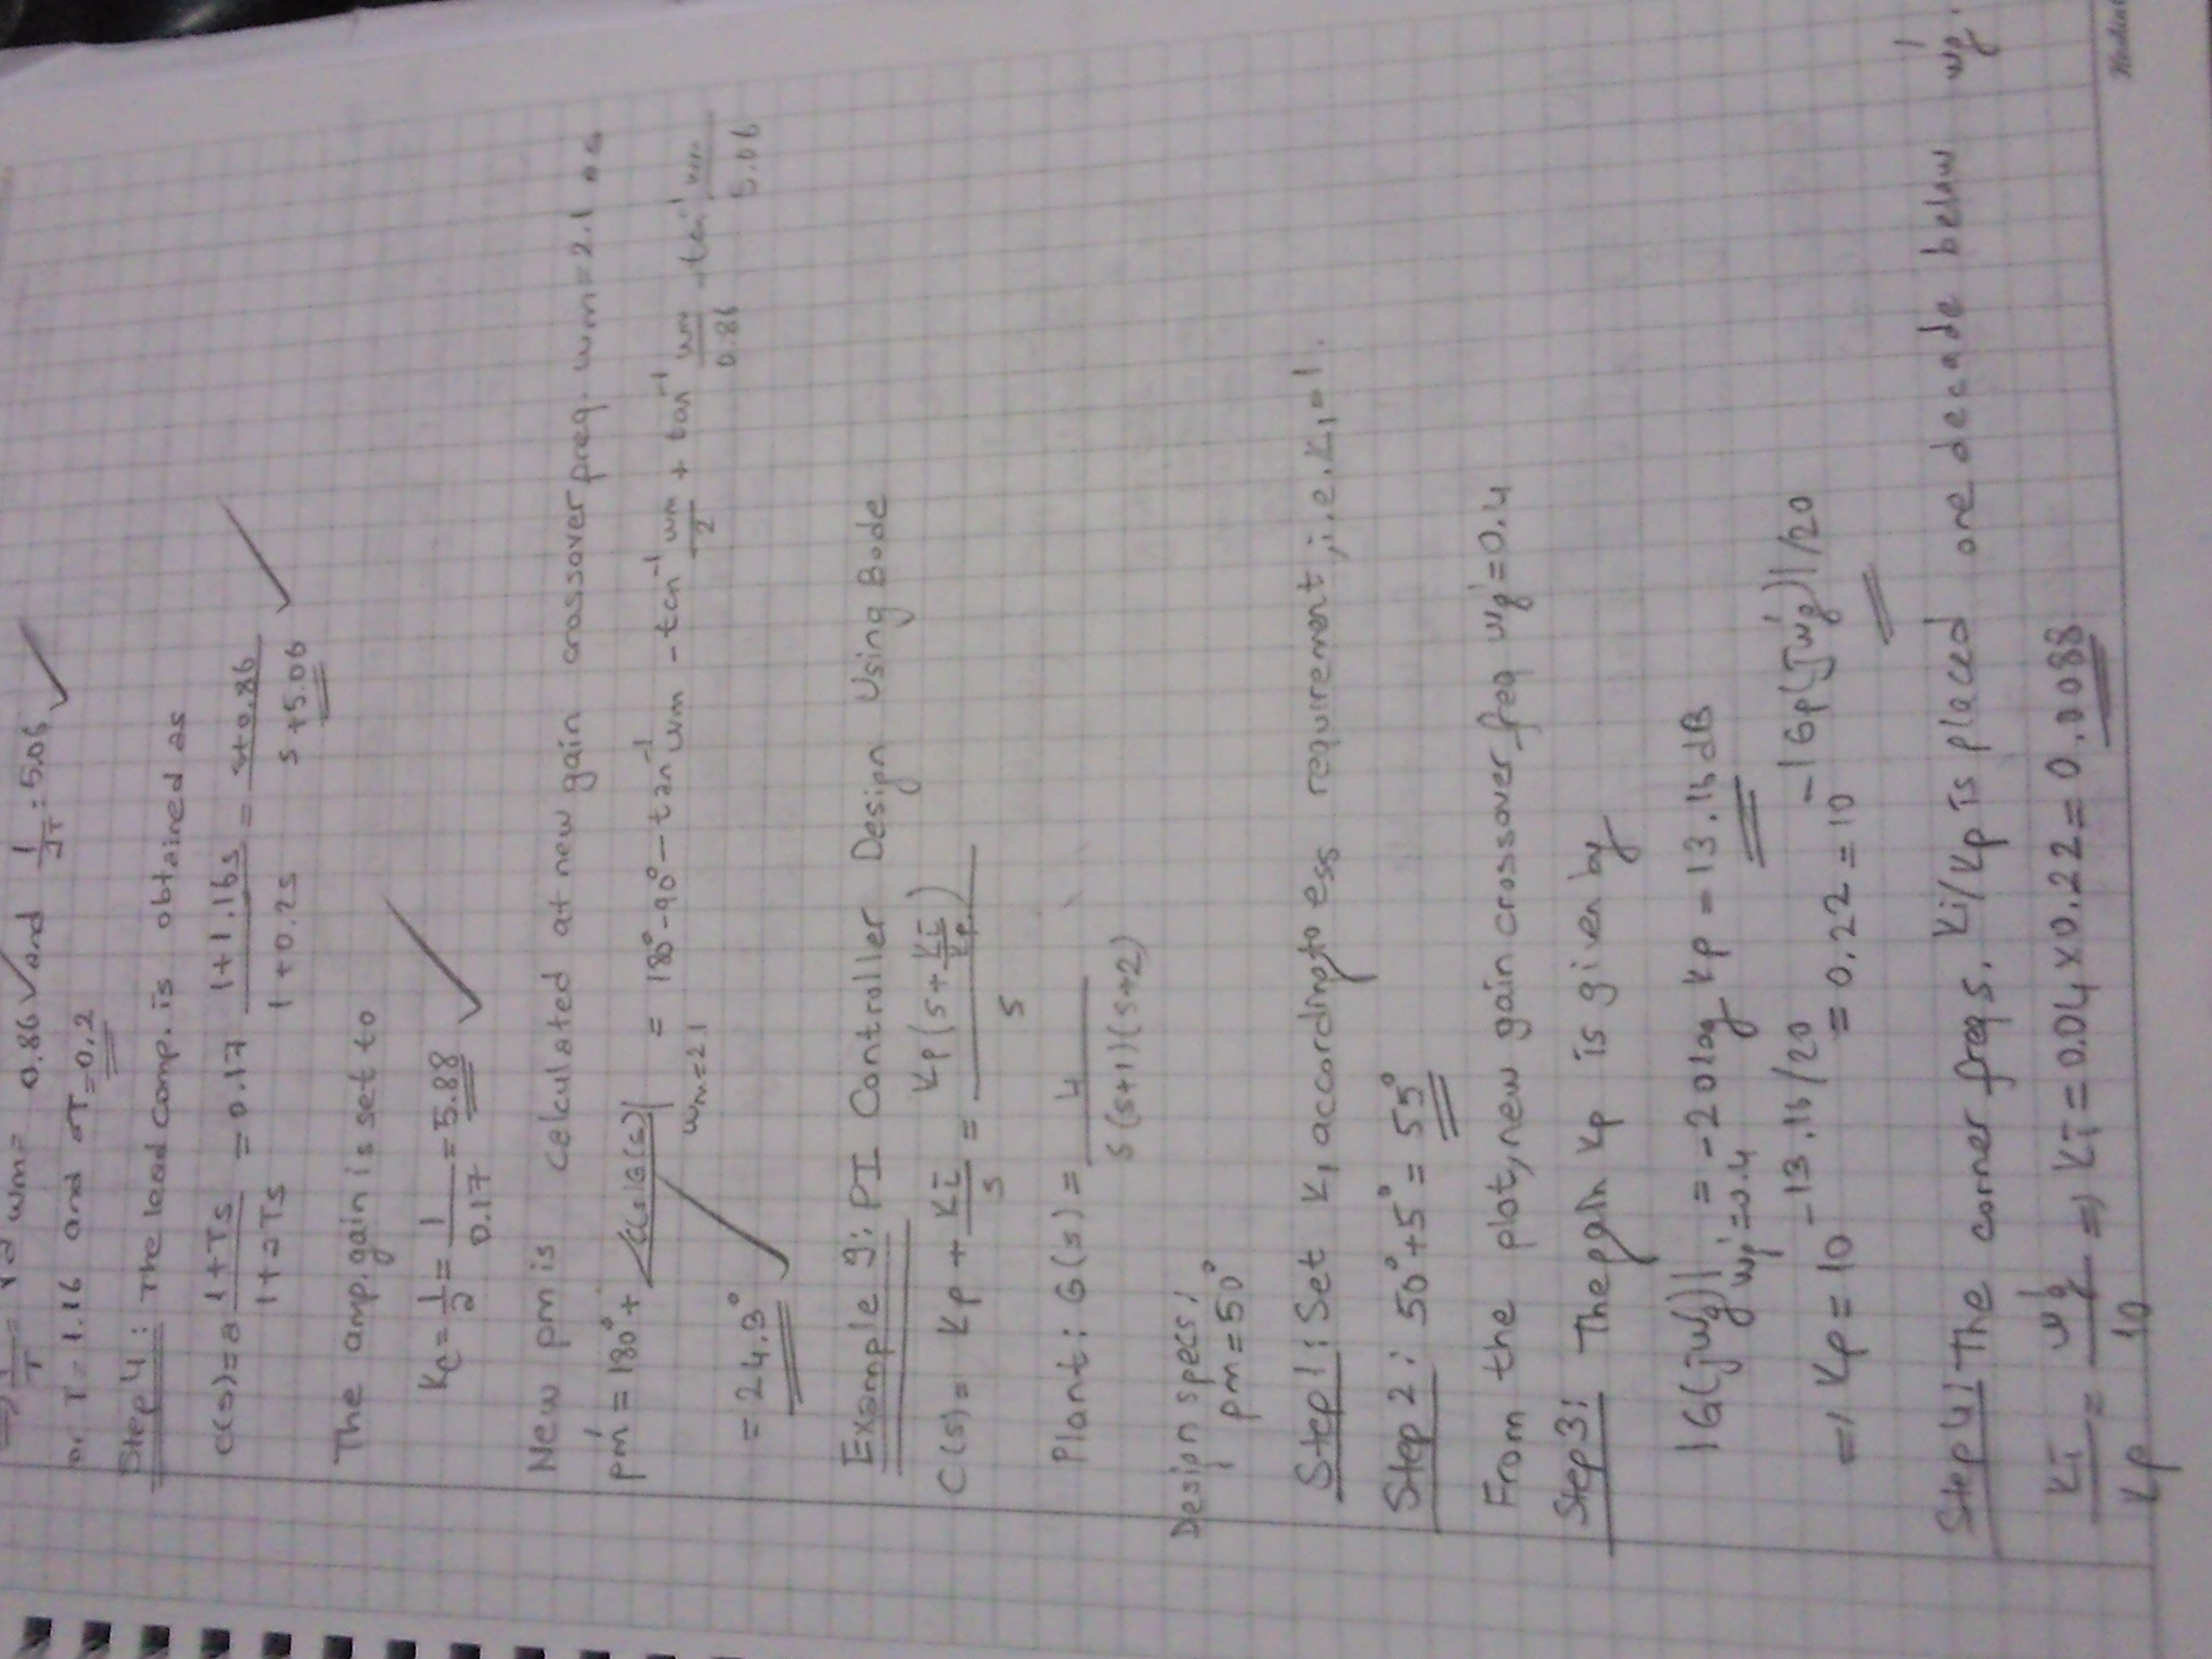 ⇒ 1/T = √a wm = 0.86 ✓ and 1/aT : 5.06 ✓
or T = 1.16 and aT = 0,2
Step 4: The lead comp. is obtained as
c(s) = a (1+Ts)/(1+aTs) = 0.17 (1+1.16s)/(1+0.2s) = (s+0.86)/(s+5.06) ✓
The amp. gain is set to
Kc = 1/a = 1/0.17 = 5.88 ✓
New pm is calculated at new gain crossover freq. wm = 2.1 as
pm' = 180° + ∠C(s)G(s)| wm=2.1 = 180° - 90° - tan⁻¹ wm - tan⁻¹ wm/2 + tan⁻¹ wm/0.86 - tan⁻¹ wm/5.06
= 24.3° ✓
Example 9: PI Controller Design Using Bode
C(s) = Kp + Ki/s = Kp(s + Ki/Kp)/s
Plant: G(s) = 4/(s(s+1)(s+2))
Design specs:
pm = 50°
Step 1: Set K1 according to ess requirement, i.e. K1 = 1.
Step 2: 50° + 5° = 55°
From the plot, new gain crossover freq wg' = 0.4
Step 3: The gain Kp is given by
|G(jwg')| wg'=0.4 = -20log Kp = 13.16 dB
⇒ Kp = 10^(-13.16/20) = 0,22 = 10^(-|Gp(jwg')|/20)
Step 4: The corner freqs. Ki/Kp is placed one decade below wg'.
Ki/Kp = wg'/10 ⇒ Ki = 0.04 x 0.22 = 0.0088